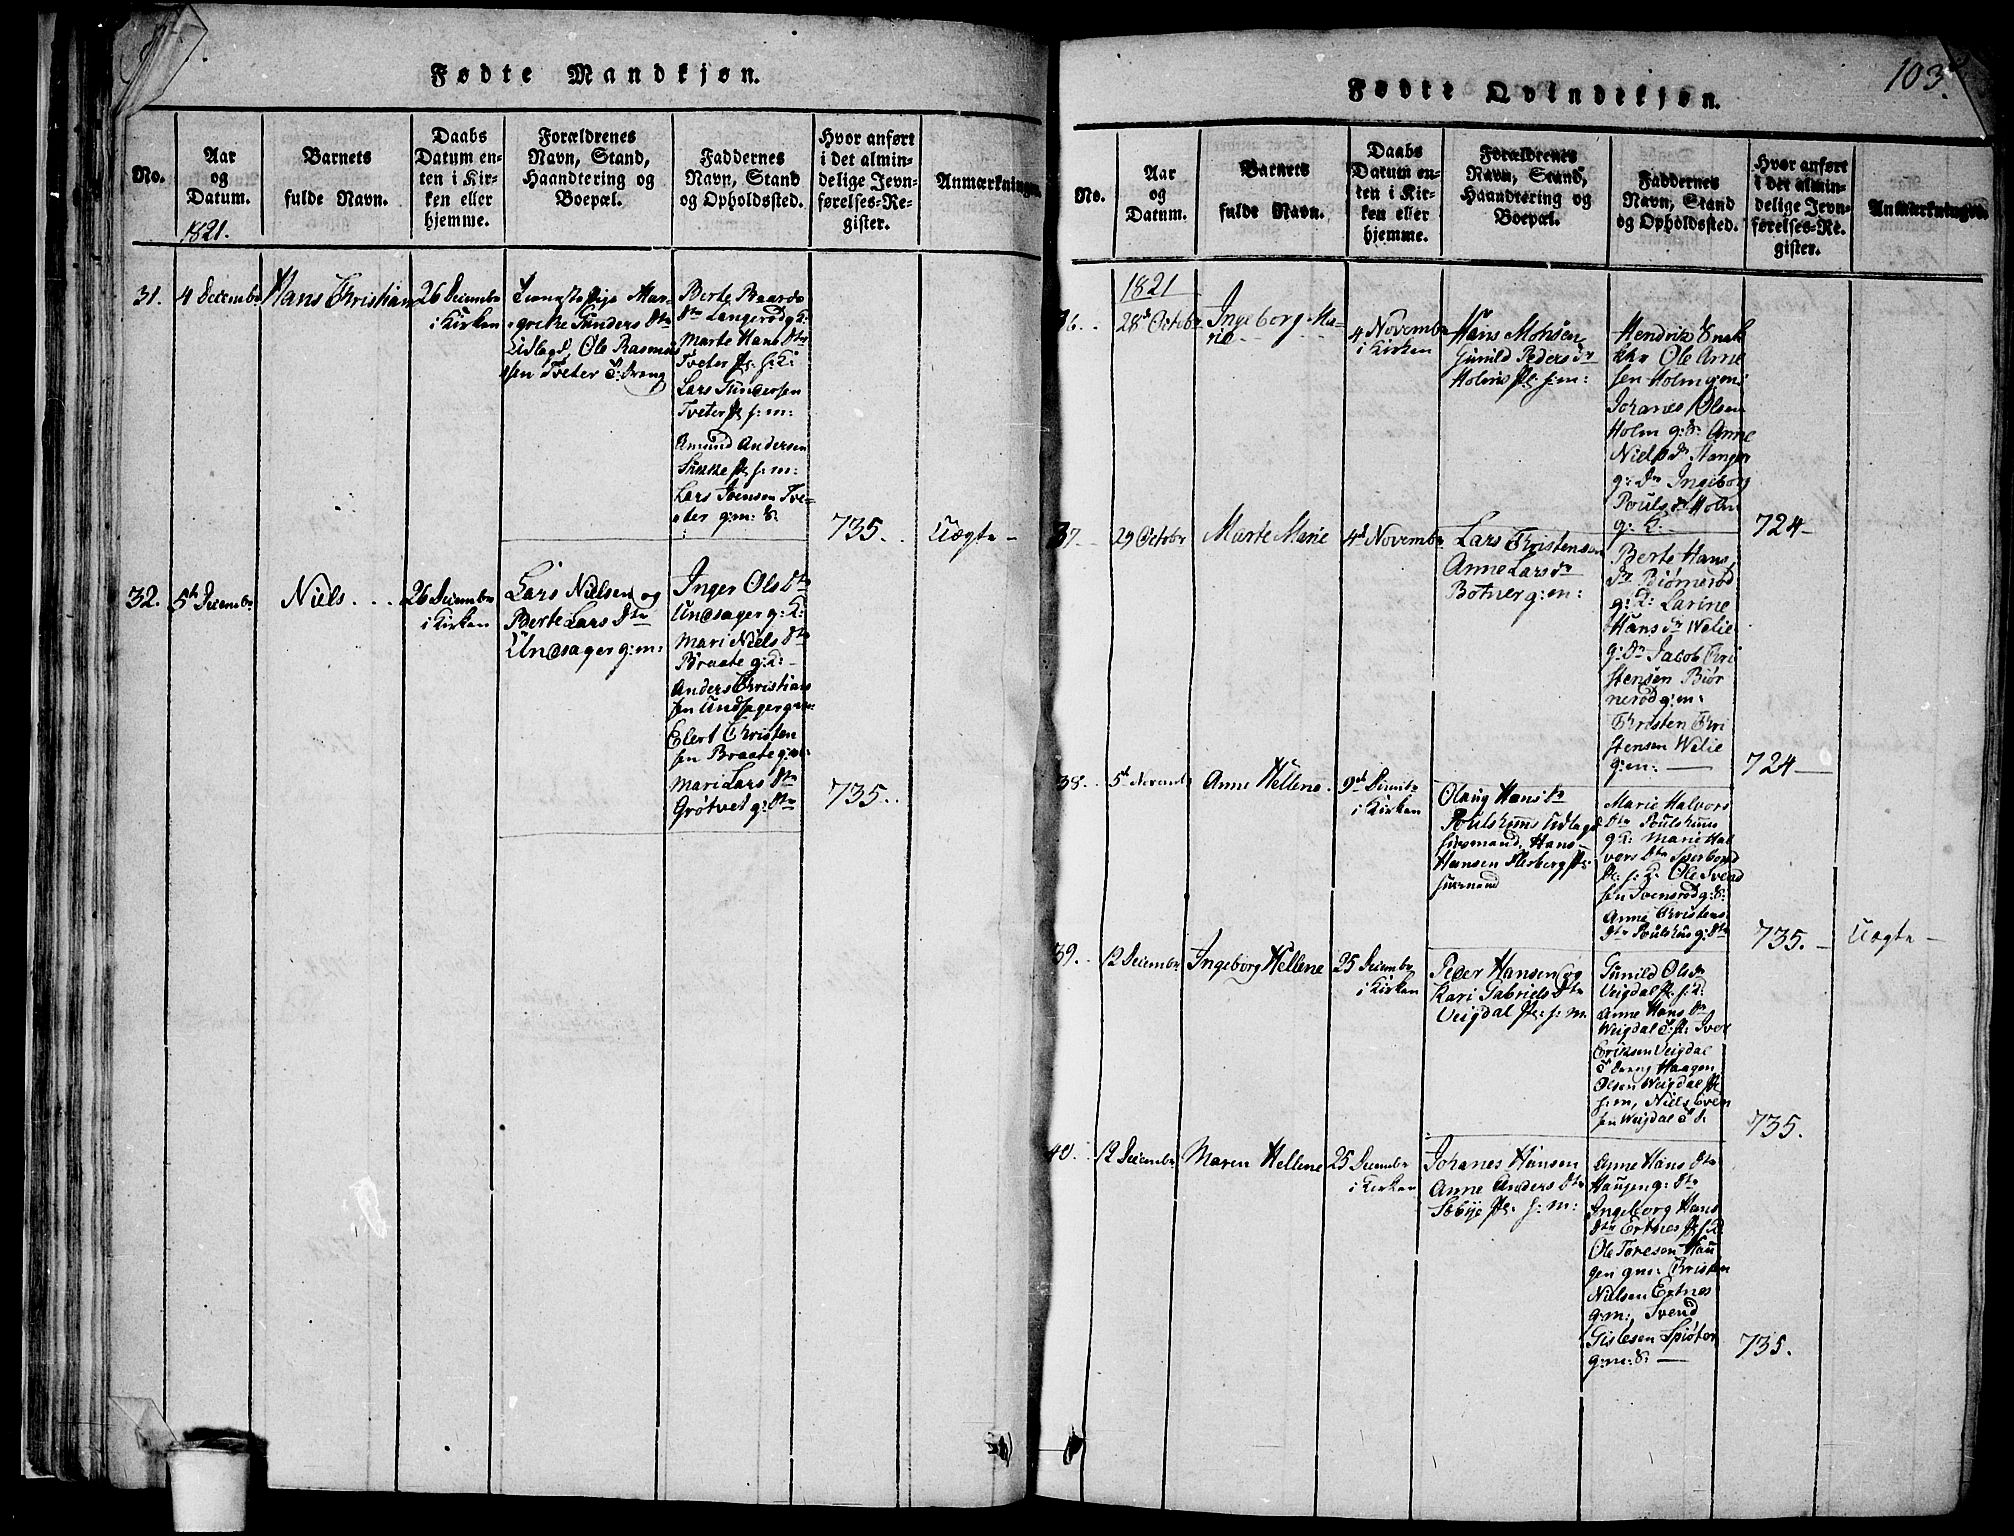 Fødte Mandkjøn.
No.
Aar
og
Datum.
Barnets
fulde Navn.
Daabs
Datum en-
ten i Kir-
ken eller
hjemme.
Forældrenes
Navn, Stand,
Haandtering og
Boepæl.
Faddernes
Navn, Stand
og Opholdssted.
Hvor anført
i det almin-
delige Jevn-
førelses-Re-
gister.
Anmærkninger.
1821.
31.
4 Decembr
Hans Christian
26 Decembr
i Kirken
Pige Mar-
grethe Gunders Dtr
Lidlagd, Ole Rasmus
sen Tveter
Berte Baards
Dtr Langerød g:K:
Marte Hans Dtr
Tveter pl: f:K:
Lars Gundersen
Tveter pl f:m:
Amund Andersen
pl f:m:
Lars Svensen Tve-
eter g:m: &
735.
Uægte -
32.
5te Decembr
Niels. . . .
26 Decembr
i Kirken
Lars Nielsen og
Berte Lars Dtr
Undsager g:m:
Inger Ols Dtr
Undsager g:K:
Mari Niels Dtr
Braate g:K:
Anders Christian
sen Undsager g:m:
Elert Christen
sen Braate g:m:
Mari Lars Dtr
Grøtvet g: Dtr
735.
Fødte Qvindekjøn.
103.
No.
Aar
og
Datum.
Barnets
fulde Navn.
Daabs
Datum en-
ten i Kir-
ken eller
hjemme.
Forældrenes
Navn, Stand,
Haandtering og
Boepæl.
Faddernes
Navn, Stand
og Opholdssted.
Hvor anført
i det almin-
delige Jevn-
førelses-Re-
gister.
Anmærkninger.
1821
36.
28de Octobr
Ingeborg Ma-
rie
4 Novembr
i Kirken
Hans Mohsen
Gunild Peders Dr
Holm pl: f:m:
Hendrik
Ole Arne
sen Holm g:m:
Johanes Olsen
Holm g: & Anne
Niels Dr Stanger
g: Dr Ingeborg
Pouls Dr Holm
g: K:
724 -
37.
29 Octobr
Marte Marie
4d Novembr
Lars Christensen
Anne Lars Dr
Botner g:m:
Berte Hans
Dr Biørnerød
g: K: Larine
Hans Dr Welie
g: Dr Jacob Chri
stensen Biør
nerød g:m:
Christen Chri
stensen Welie
g:m:
724 -
38.
5d Novemb
Anne Hellene.
9d Decmbr
i Kirken
Olaug Hans Dr
Poulshuus Udlagd
Hans
Hansen
Marie Halvors
Dtr Poulshuus
g:K: Marie Hal
vors Dtr
pl: f: K: Ole Svend
sen Svensrød g: &:
Anne Christens
Dtr Poulshus g: Dtr
735. -
Uægte -
39.
12 Decembr
Ingeborg Hellene
25 Decembr
i Kirken
Peder Hansen og
Kari Gabriels Dtr
Veigdal pl: f: m.
Gunild Ols Dr
Veigdal pl: f: K:
Anne Hans Dtr
Weigdal Iver
Eriksen Veigdal
Haagen
Olsen Weigdal pl
f:m, Niels Sven
sen Weigdal
735.
40.
12 Decembr
Maren Hellene
25 Decembr
i Kirken
Johanes Hansen
Anne Anders Dtr
Sobye pl: f: m:
Anne Hans Dtr
Haugen g: Dtr
Ingeborg Hans
Dtr Ertnes pl f:K
Ole Toresen Hau
gen gm: Christen
Nielsen Ertnes
g:m:, Svend
Gislesen Spiøtor
g:m: &.
735.